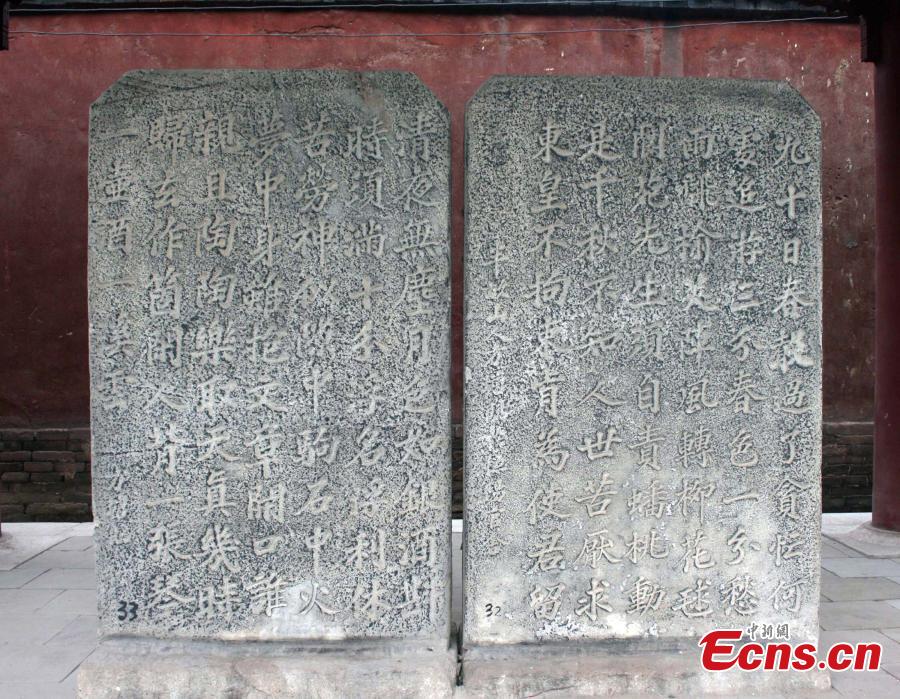 九十日春都過了貪忙何
處追游三分春色一分愁
雨飜榆莢陣風轉柳花毬
閬苑先生須自責蟠桃動
是千秋不知人世苦厭求
東皇不拘束肯為使君留
清夜無塵月色如銀酒斟
時須滿十分浮名浮利休
苦勞神隙中駒石中火
夢中身雖抱文章開口誰
親且陶陶樂取天真幾時
歸去作箇閒人背一張琴
一壺酒一溪雲
33
32
中新網
Ecns.cn